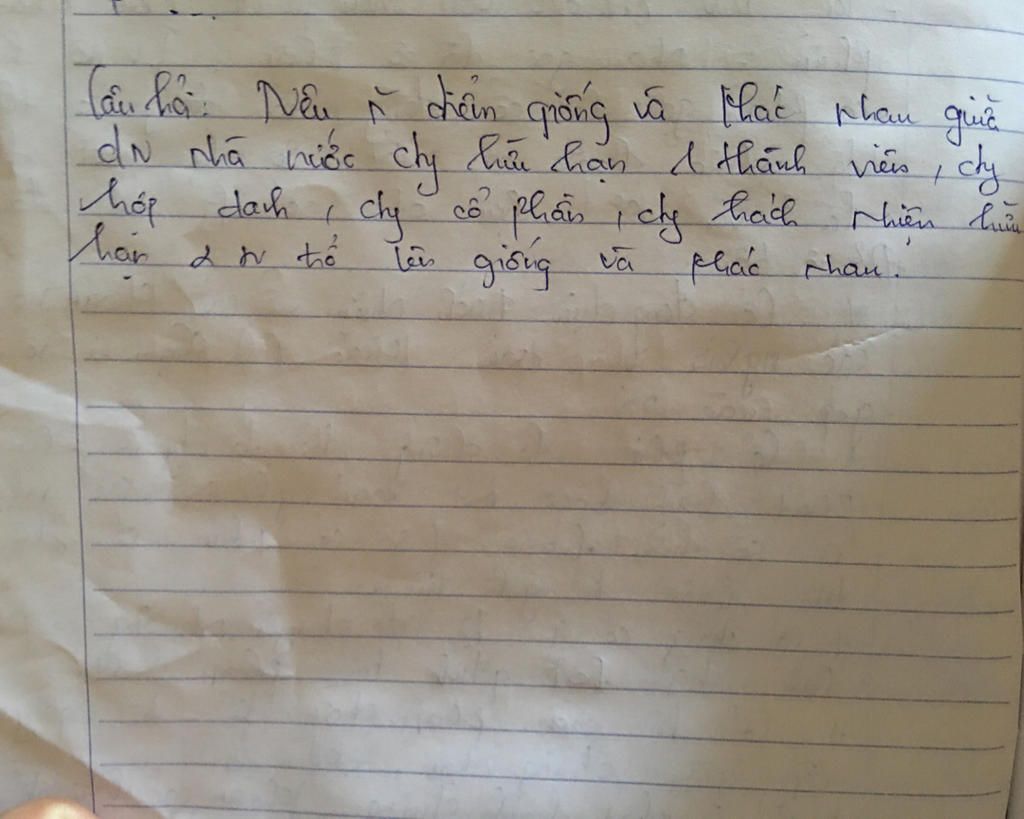 Câu hỏi: Nêu n~ điểm giống và khác nhau giữa
dN nhà nước cty hữu hạn 1 thành viên, cty
hợp danh, cty cổ phần, cty trách nhiệm hữu
hạn 2 tv trở lên giống và khác nhau.